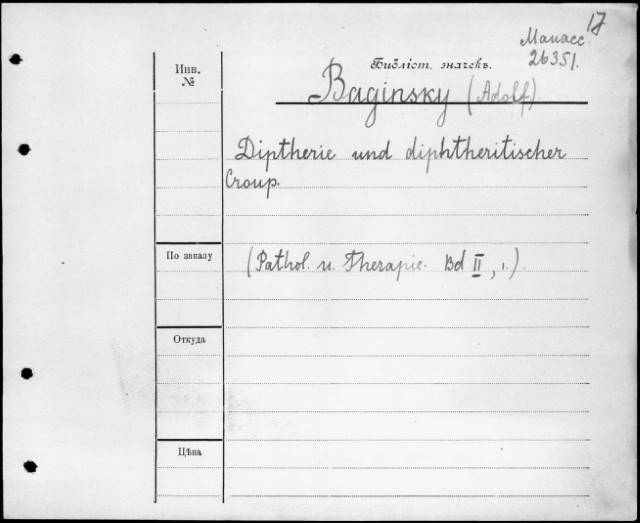 17
Манасс.
26351.
Инв.
№
Библіот. значекъ.
Baginsky (Adolf)
Diptherie und diphtheritischer
Croup.
По заказу
(Pathol. u. Therapie. Bd II, 1.).
Откуда
Цѣна